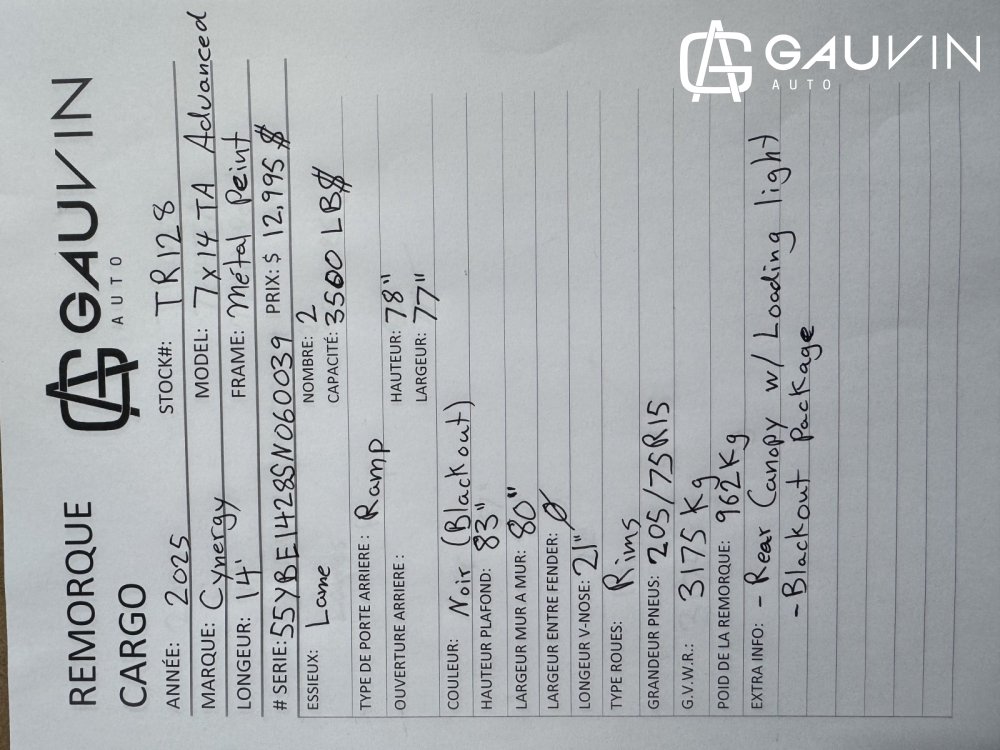 GAUVIN
AUTO
REMORQUE
CARGO
GAUVIN
AUTO
ANNÉE: 2025 STOCK#: TR128
MARQUE: Cynergy MODEL: 7x14 TA Advanced
LONGEUR: 14' FRAME: Métal Peint
# SERIE: 55YBE1428SN060039 PRIX: $ 12,995 $
ESSIEUX: Lame NOMBRE: 2
CAPACITÉ: 3500 LB$
TYPE DE PORTE ARRIERE: Ramp
OUVERTURE ARRIERE: HAUTEUR: 78"
LARGEUR: 77"
COULEUR: Noir (Blackout)
HAUTEUR PLAFOND: 83"
LARGEUR MUR A MUR: 80"
LARGEUR ENTRE FENDER: Ø
LONGEUR V-NOSE: 21"
TYPE ROUES: Rims
GRANDEUR PNEUS: 205/75R15
G.V.W.R.: 3175 Kg
POID DE LA REMORQUE: 962 Kg
EXTRA INFO: - Rear Canopy w/ Loading light
- Blackout Package